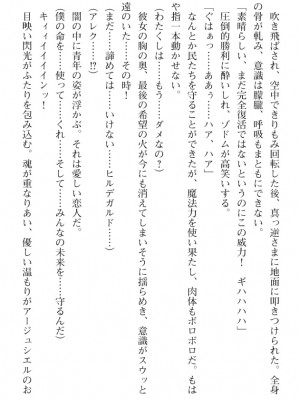 吹き飛ばされ、空中できりもみ回転した後、真っ逆さまに地面に叩きつけられた。全身
の骨が軋み、意識は朦朧、呼吸もまともにできない。
「素晴らしい！　まだ完全復活ではないというのにこの威力！　ギハハハハ」
圧倒的勝利に酔いしれ、ゾドムが高笑いする。
「ぐはぁっ……ああう……ハア、ハア」
なんとか民たちを守ることができたが、魔法力を使い果たし、肉体もボロボロだ。もは
や指一本動かせない。
（わたくしは……もう……ダメなの？）
彼女の胸の奥、最後の希望の火が今にも消えてしまいそうに揺らめき、意識がスウッと
遠のいた、その時！
（まだ……諦めては……いけない……ヒルデガルド……）
（アレク……!?）
闇の中に青年の姿が浮かぶ。それは愛しい恋人だ。
（僕の命を……使って……くれ……そして……みんなの未来を……守るんだ）
キィィイイイインッ！
目映い閃光がふたりを包み込む。魂が重なりあい、優しい温もりがアージュシエルのお